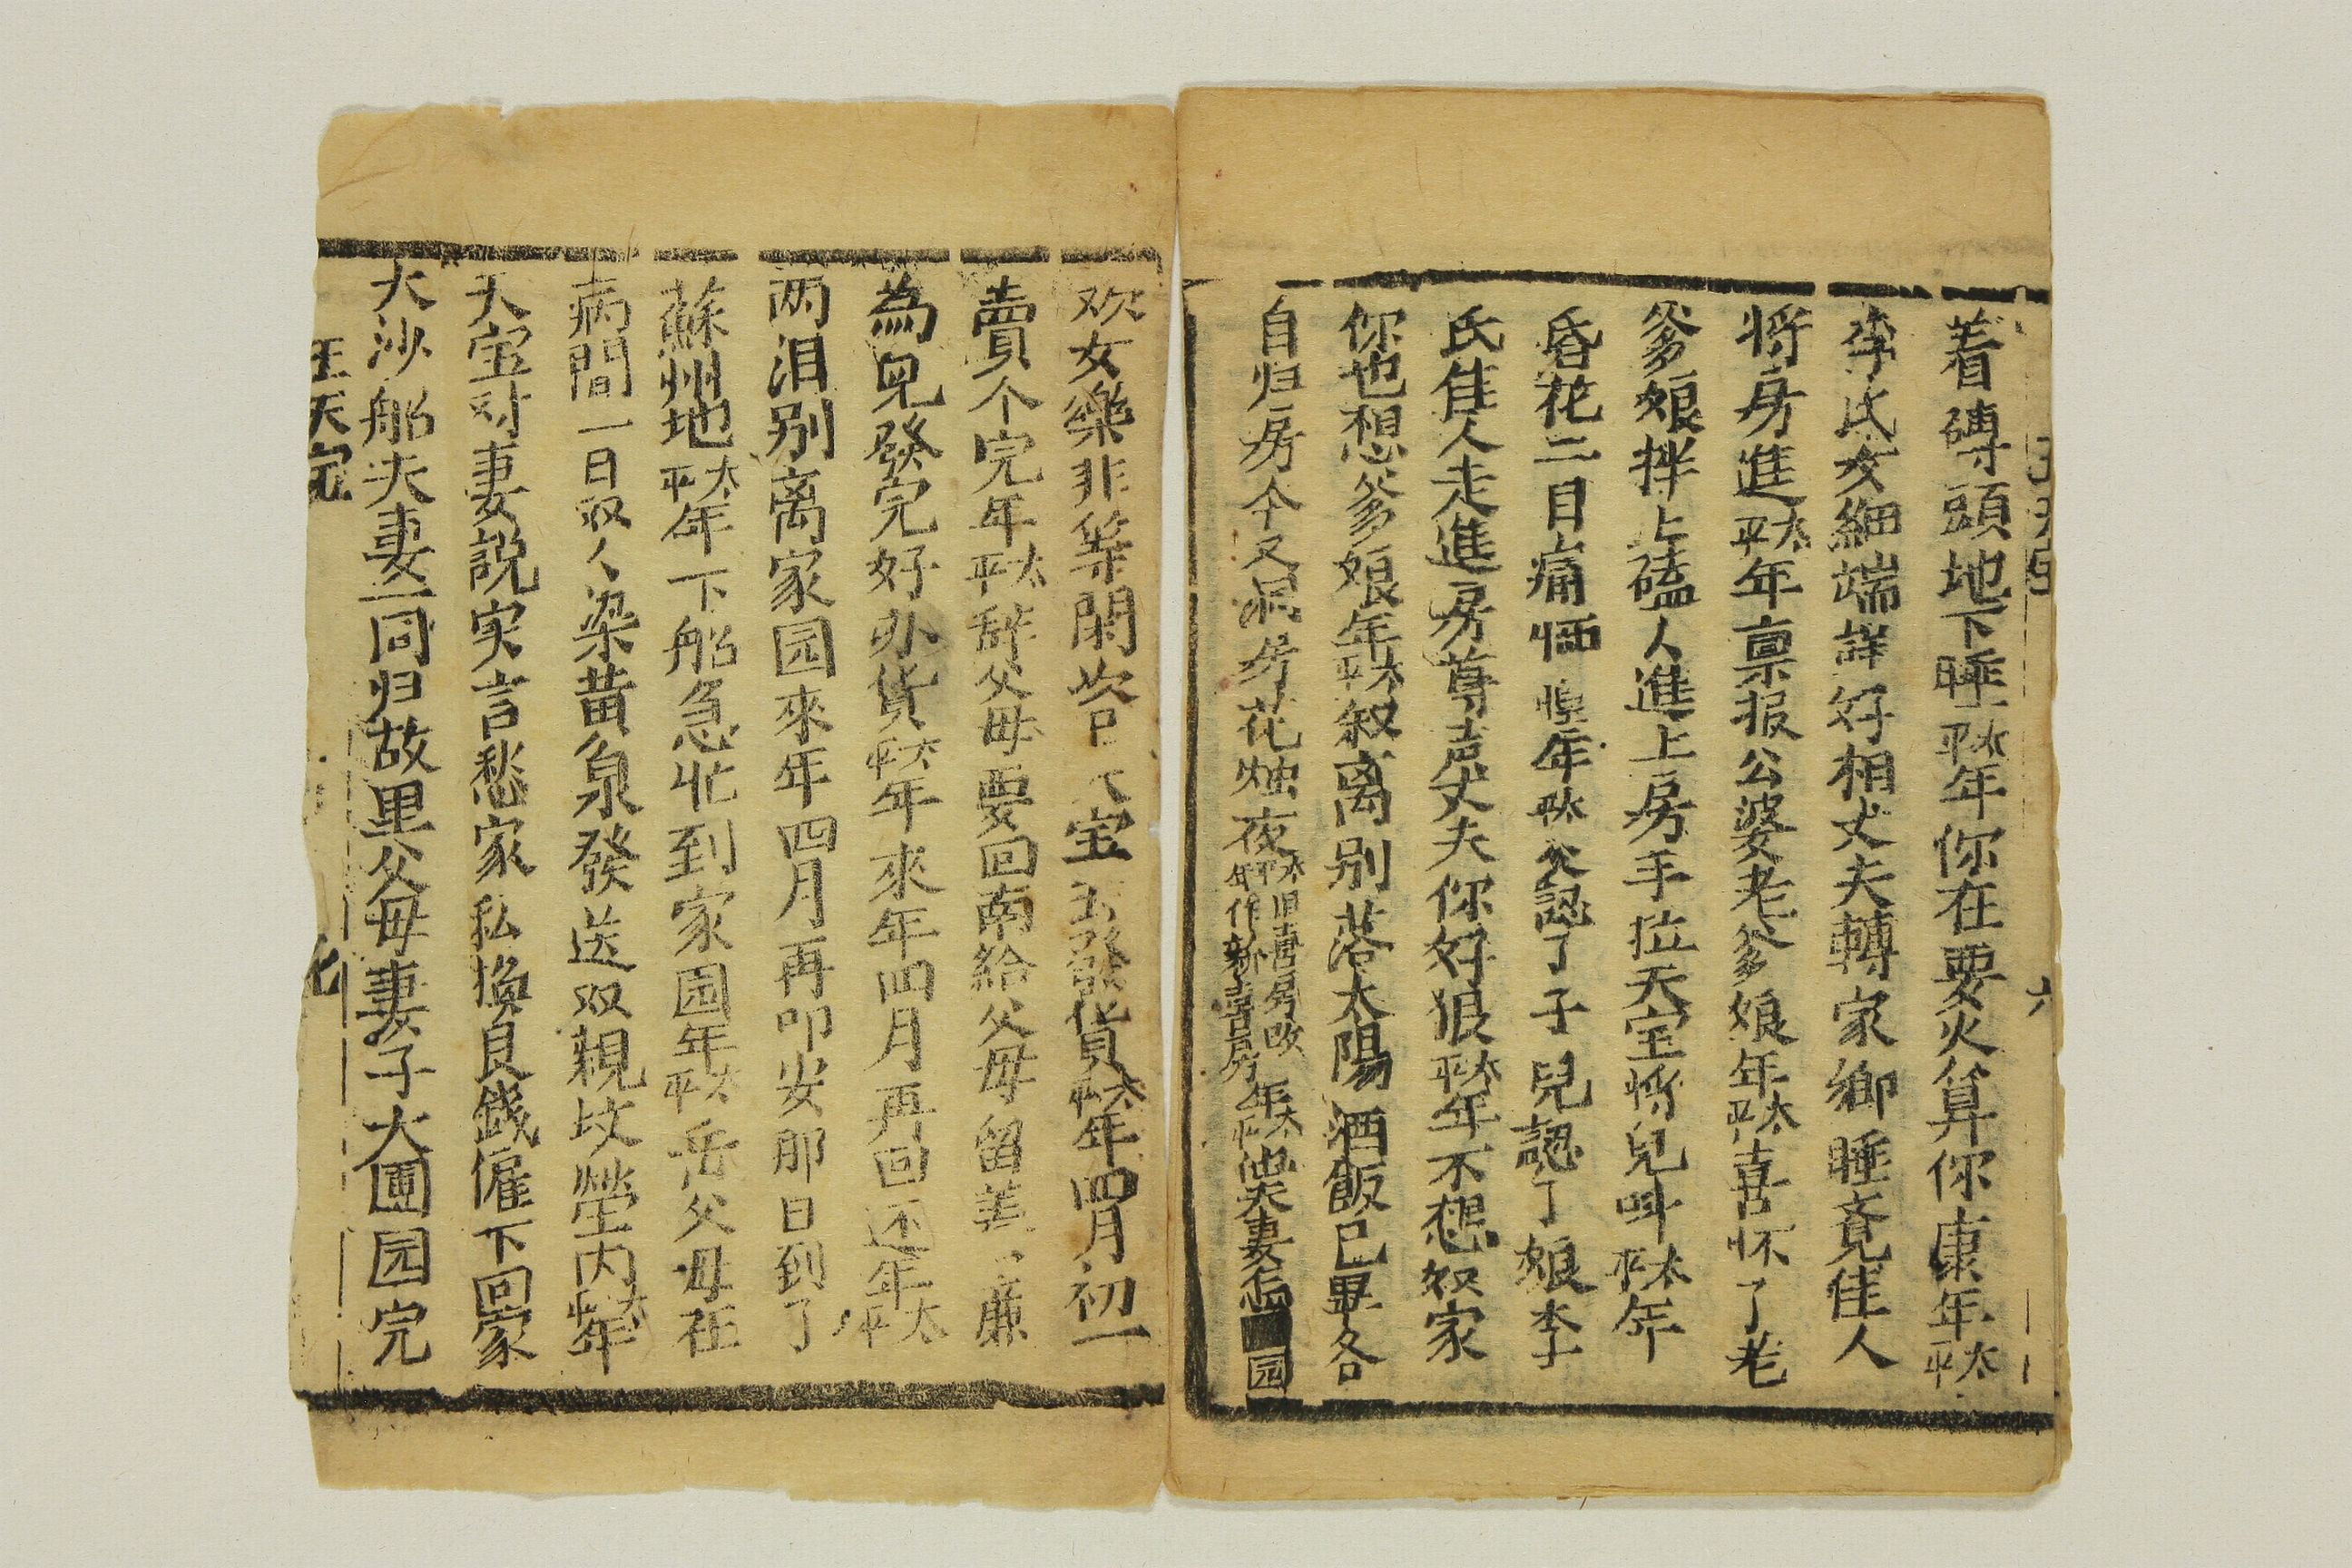 王天宝
六
着磚頭地下睡太平年你在要火算你康年太平
李氏女細端詳好相丈夫轉家鄉睡竟佳人
将房進太平年禀报公婆老爹娘年太平喜怀了老
爹娘拌上磕人進上房手拉天宝将兒呌太平年
昏花二目痛恓惶年太平父認了子兒認了娘李
氏佳人走進房尊声丈夫你好狠太平年不想奴家
你也想爹娘年太平叙离别落太陽酒飯已畢各
自归房今又洞房花烛夜太平年旧喜房改作新喜房年太平夫妻怎园
欢女樂非等閑宝發貨太平年四月初一
賣个完年太平辞父母要回南給父母留养廉
為兒發完好办貨太平年來年四月再回还年太平
两泪别离家园來年四月再叩安那日到了
蘇州地太平年下船急忙到家园年太平岳父母在
病間一日双人染黄泉發送双親坟塋内太平年
天宝对妻説实言愁家私換良錢僱下回家
大沙船夫妻一同归故里父母妻子大團园完
王天宝
七